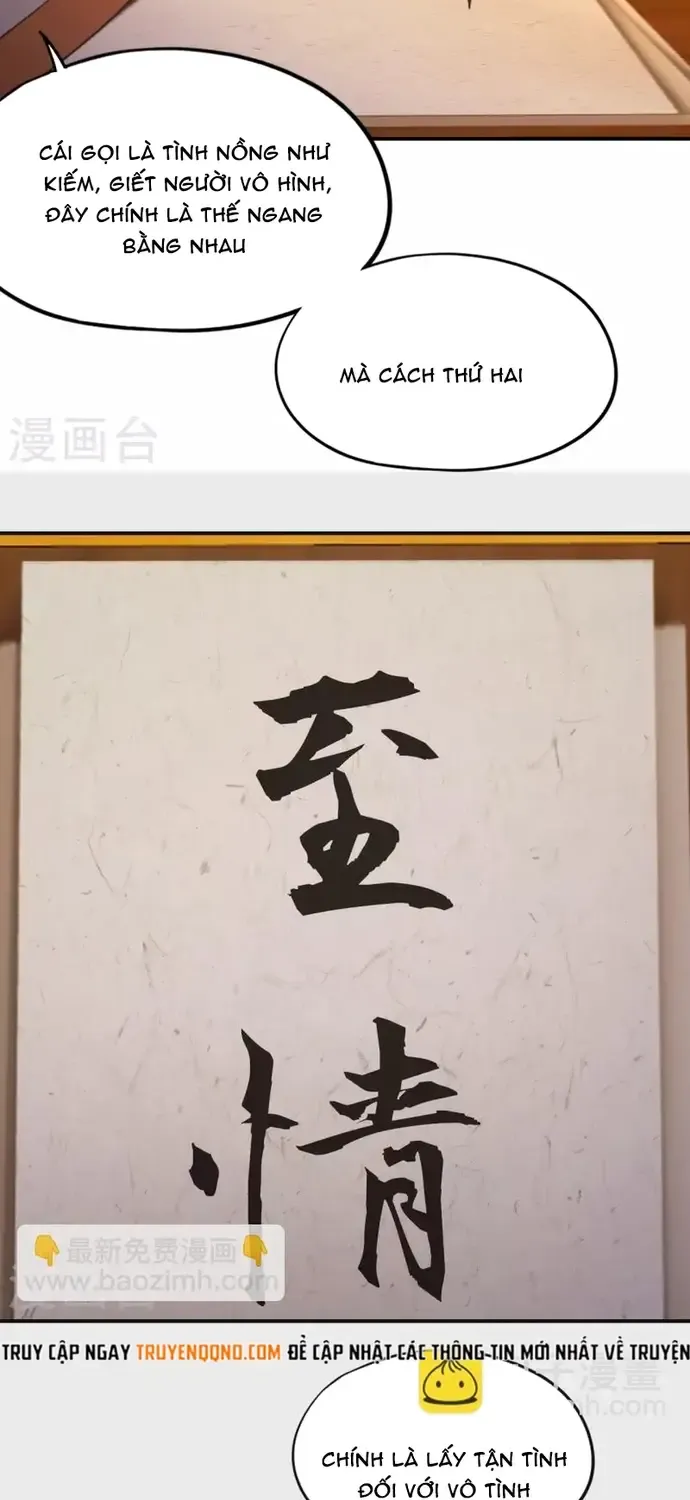 CÁI GỌI LÀ TÌNH NỒNG NHƯ
KIẾM, GIẾT NGƯỜI VÔ HÌNH,
ĐÂY CHÍNH LÀ THẾ NGANG
BẰNG NHAU
MÀ CÁCH THỨ HAI
漫画台
至
情
最新免费漫画
www.baozimh.com
TRUY CẬP NGAY TRUYENQQNO.COM ĐỂ CẬP NHẬT CÁC THÔNG TIN MỚI NHẤT VỀ TRUYỆN
漫畫
CHÍNH LÀ LẤY TẬN TÌNH
ĐỐI VỚI VÔ TÌNH